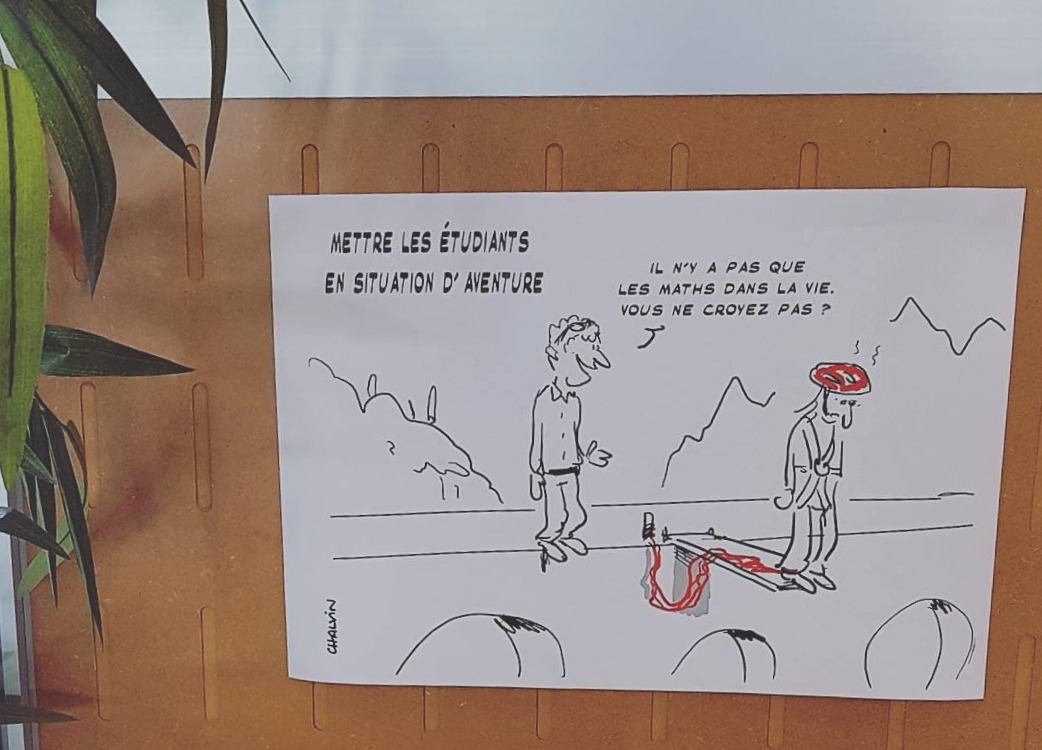 METTRE LES ÉTUDIANTS
EN SITUATION D' AVENTURE
IL N'Y A PAS QUE
LES MATHS DANS LA VIE.
VOUS NE CROYEZ PAS ?
CHALVIN